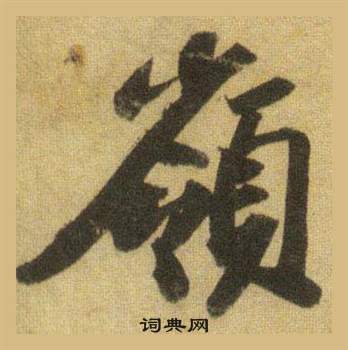 嶺
词典网